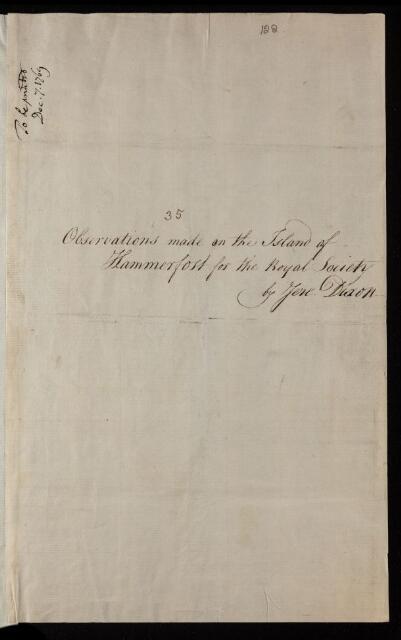 122
To be printed
Dec. 7. 1769
35
Observations made on the Island of
Hammerfost for the Royal Society
by Jere. Dixon